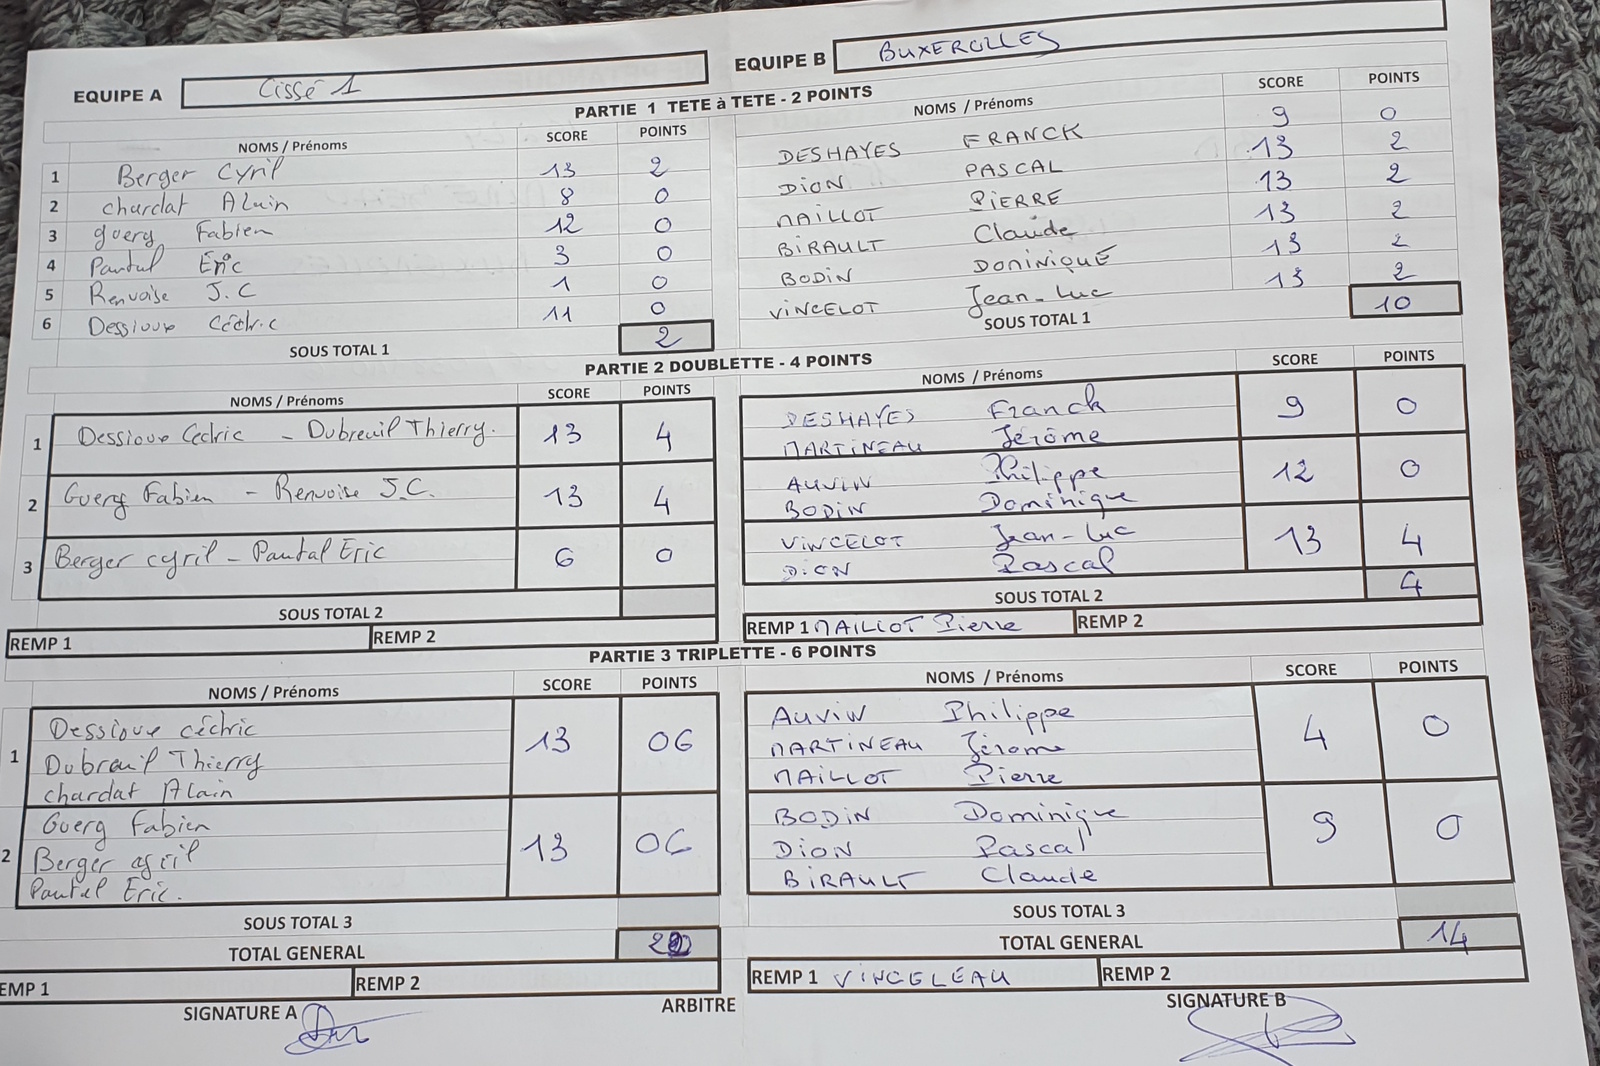 EQUIPE A Cissé 1 EQUIPE B BUXEROLLES
PARTIE 1 TETE à TETE - 2 POINTS
NOMS / Prénoms SCORE POINTS NOMS / Prénoms SCORE POINTS
1 Berger Cyril 13 2 DESHAYES FRANCK 9 0
2 chardat Alain 8 0 DION PASCAL 13 2
3 guerg Fabien 12 0 MAILLOT PIERRE 13 2
4 Pautal Éric 3 0 BIRAULT Claude 13 2
5 Renvoise J.C 1 0 BODIN DOMINIQUE 13 2
6 Dessioux Cédric 11 0 VINCELOT Jean-Luc 13 2
SOUS TOTAL 1 2 SOUS TOTAL 1 10
PARTIE 2 DOUBLETTE - 4 POINTS
NOMS / Prénoms SCORE POINTS NOMS / Prénoms SCORE POINTS
1 Dessioux Cédric - Dubreuil Thierry. 13 4 DESHAYES Franck 9 0
MARTINEAU Jérôme
2 Guerg Fabien - Renvoise J.C. 13 4 AUVIN Philippe 12 0
BODIN Dominique
3 Berger cyril - Pautal Eric 6 0 VINCELOT Jean-Luc 13 4
DION Pascal
SOUS TOTAL 2 SOUS TOTAL 2 4
REMP 1 REMP 2 REMP 1 MAILLOT Pierre REMP 2
PARTIE 3 TRIPLETTE - 6 POINTS
NOMS / Prénoms SCORE POINTS NOMS / Prénoms SCORE POINTS
1 Dessioux cédric 13 06 AUVIN Philippe 4 0
Dubreuil Thierry MARTINEAU Jérome
chardat Alain MAILLOT Pierre
2 Guerg Fabien 13 06 BODIN Dominique 9 0
Berger cyril DION Pascal
Pautal Eric. BIRAULT Claude
SOUS TOTAL 3 SOUS TOTAL 3
TOTAL GENERAL TOTAL GENERAL 14
EMP 1 REMP 2 REMP 1 VINCELEAU REMP 2
SIGNATURE A ARBITRE SIGNATURE B